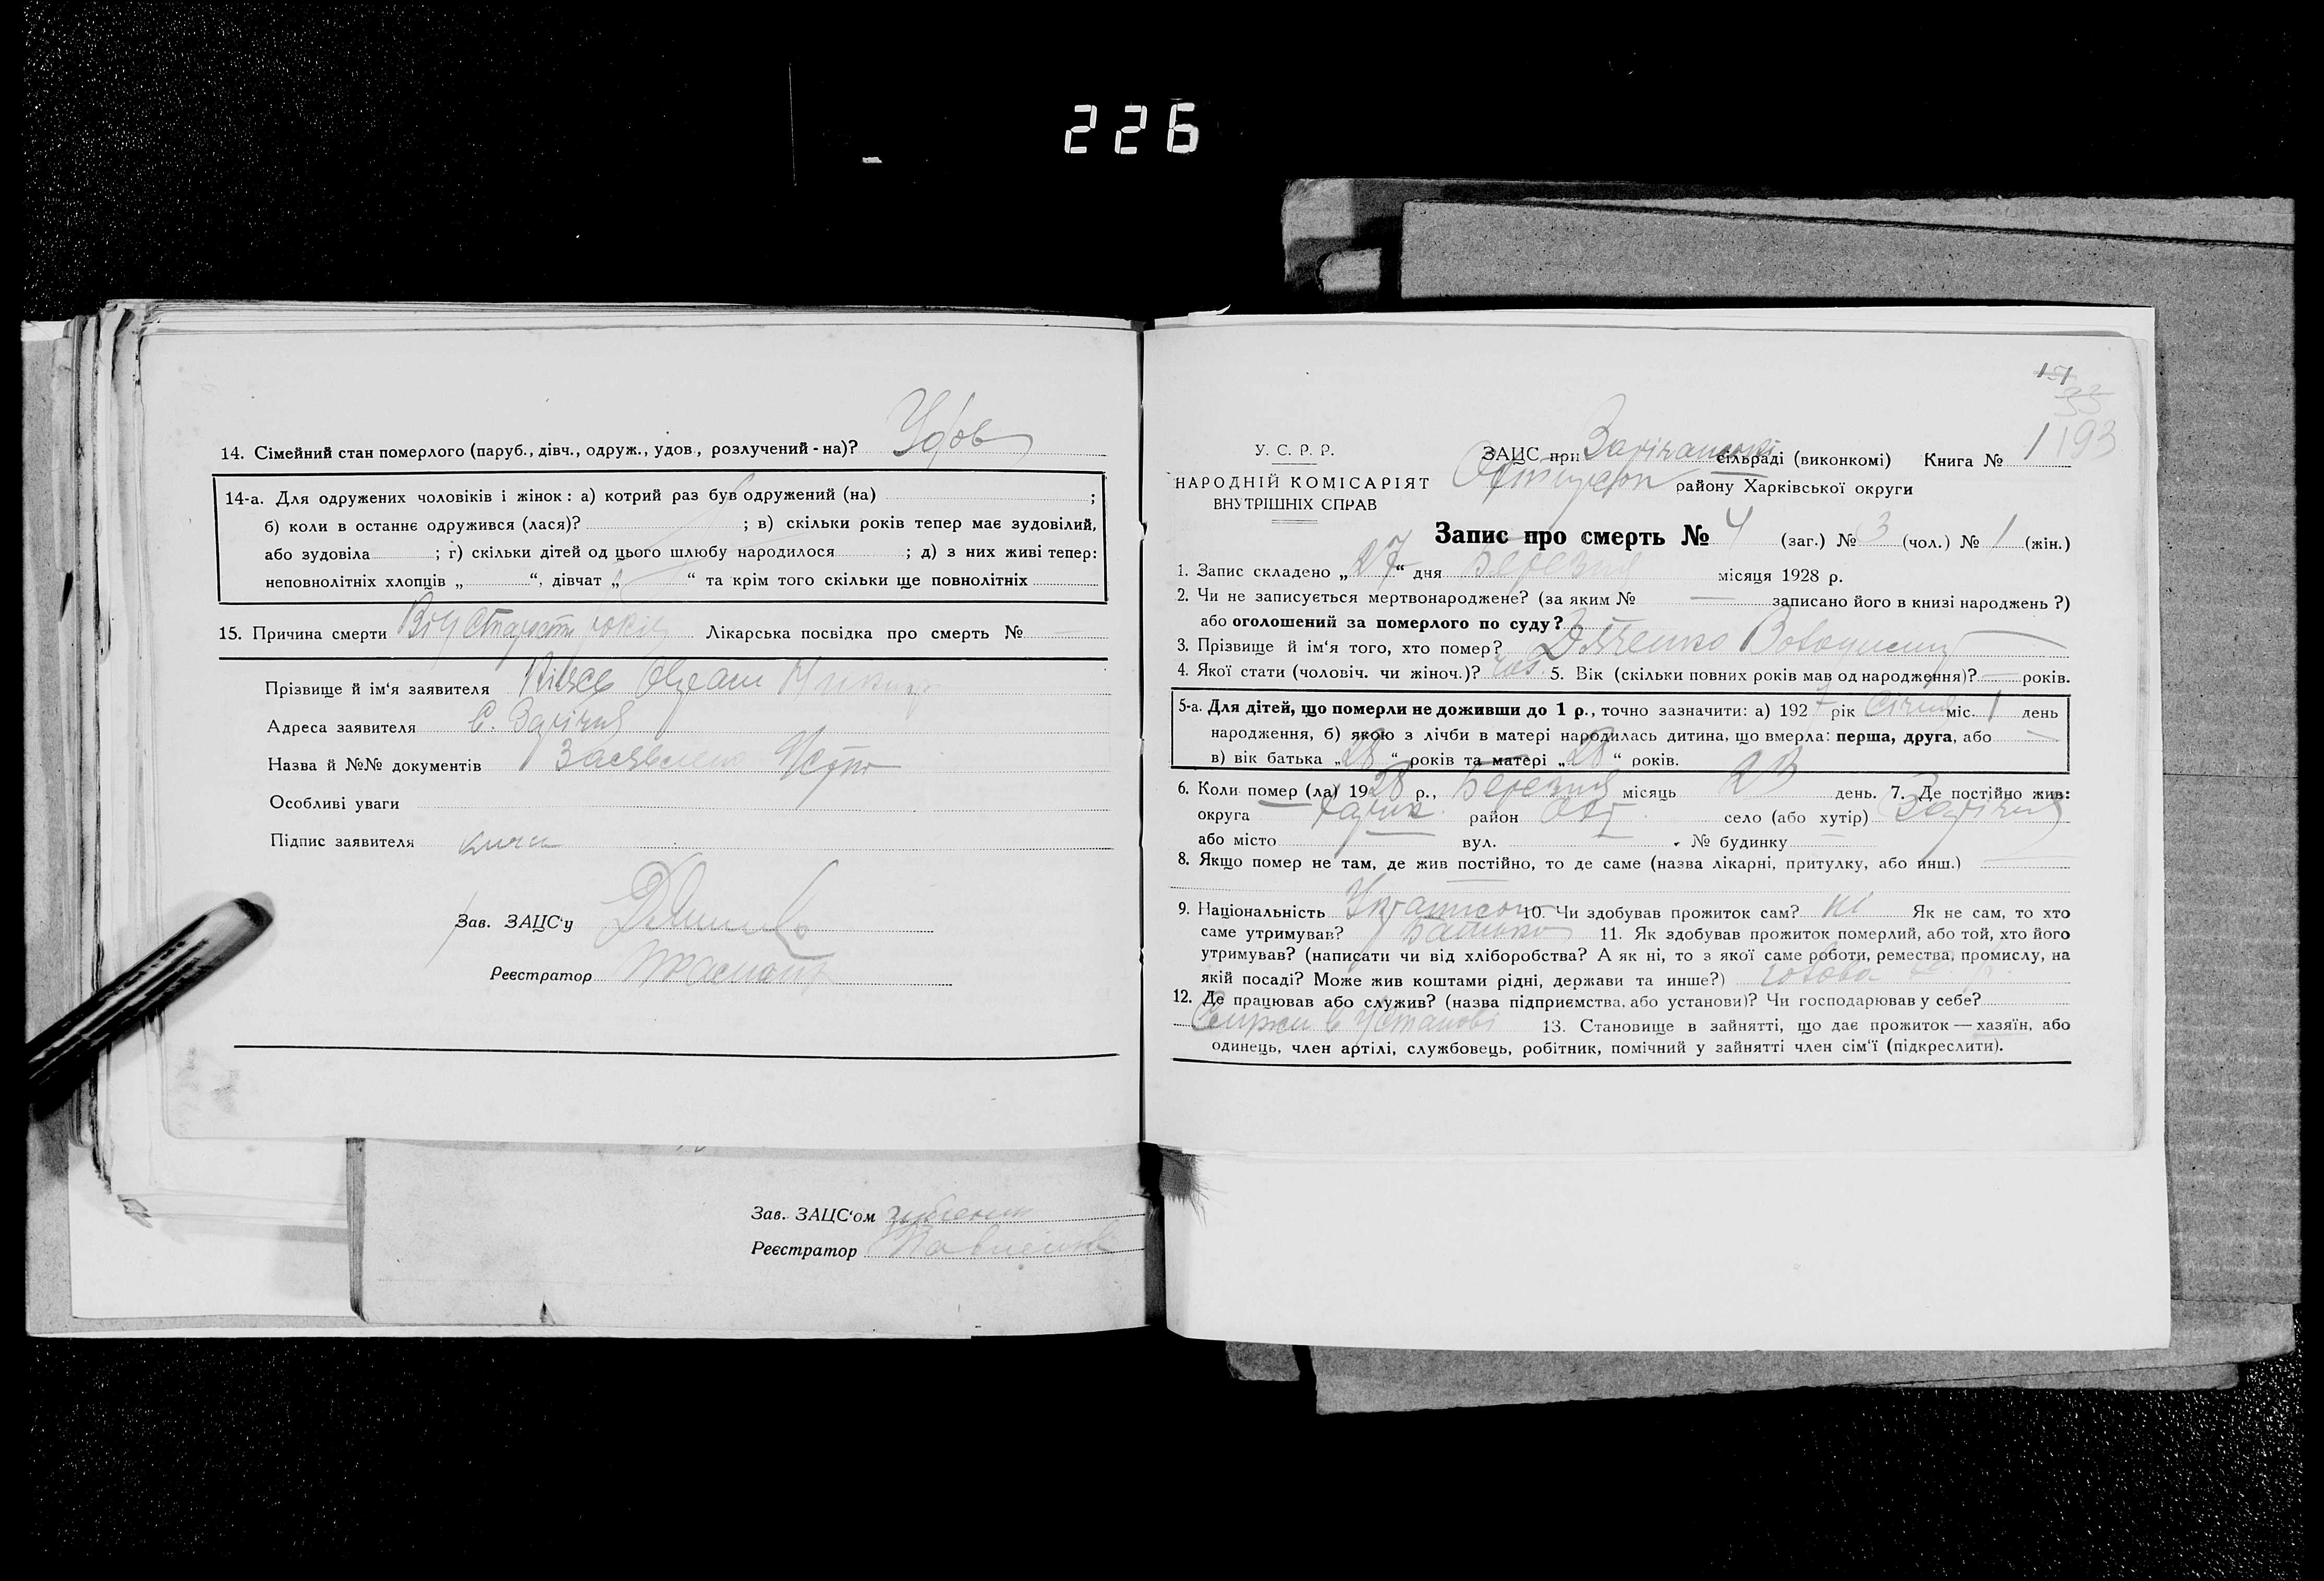 226
14. Сімейний стан померлого (паруб., дівч., одруж., удов., розлучений - на)? Удов
14-а. Для одружених чоловіків і жінок: а) котрий раз був одружений (на) ;
б) коли в останнє одружився (лася)? ; в) скільки років тепер має зудовілий,
або зудовіла ; г) скільки дітей од цього шлюбу народилося ; д) з них живі тепер:
неповнолітніх хлопців „ “, дівчат „ “ та крім того скільки ще повнолітніх
15. Причина смерти Від Лікарська посвідка про смерть № —
Прізвище й ім‘я заявителя
Адреса заявителя С. Зарічня
Назва й №№ документів
Особливі уваги
Підпис заявителя
Зав. ЗАЦС‘у
Реєстратор
Зав. ЗАЦС‘ом
Реєстратор
33
1 193
У. С. Р. Р.
НАРОДНІЙ КОМІСАРІЯТ
ВНУТРІШНІХ СПРАВ
ЗАЦС при сільраді (виконкомі) Книга № 1
району Харківської округи
Запис про смерть № 4 (заг.) № 3 (чол.) № 1 (жін.)
1. Запис складено „27“ дня Березня місяця 1928 р.
2. Чи не записується мертвонароджене? (за яким № — записано його в книзі народжень ?)
або оголошений за померлого по суду?
3. Прізвище й ім‘я того, хто помер? Дяченко Володимир
4. Якої стати (чоловіч. чи жіноч.)? чол 5. Вік (скільки повних років мав од народження)? — років.
5-а. Для дітей, що померли не доживши до 1 р., точно зазначити: а) 1927 рік Січня міс. 1 день
народження, б) якою з лічби в матері народилась дитина, що вмерла: перша, друга, або —
в) вік батька „28“ років та матері „28“ років.
6. Коли помер (ла) 1928 р., Березня місяць 23 день. 7. Де постійно жив:
округа Харьк. район село (або хутір) Зарічня
або місто вул. № будинку —
8. Якщо помер не там, де жив постійно, то де саме (назва лікарні, притулку, або инш.) —
9. Національність 10. Чи здобував прожиток сам? ні Як не сам, то хто
саме утримував? Батько 11. Як здобував прожиток померлий, або той, хто його
утримував? (написати чи від хліборобства? А як ні, то з якої саме роботи, ремества, промислу, на
якій посаді? Може жив коштами рідні, держави та инше?) голова
12. Де працював або служив? (назва підприємства, або установи)? Чи господарював у себе?
в Установі 13. Становище в зайнятті, що дає прожиток — хазяїн, або
одинець, член артілі, службовець, робітник, помічний у зайнятті член сім‘ї (підкреслити).